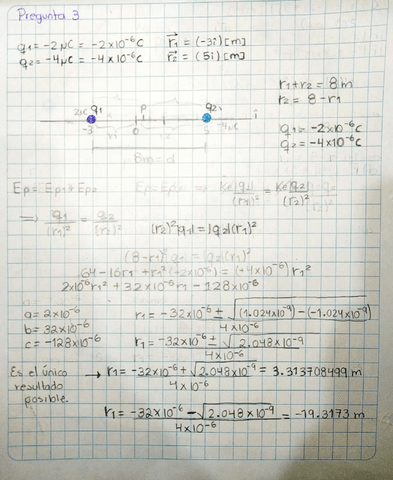 Pregunta 3
q1 = -2μC = -2x10⁻⁶C r⃗1 = (-3i) [m]
q2 = -4μC = -4x10⁻⁶C r⃗2 = (5i) [m]
r1 + r2 = 8m
r2 = 8 - r1
2μC q1 P q2
-3 0 5 -4μC i
r1
8m = d
q1 = -2x10⁻⁶C
q2 = -4x10⁻⁶C
Ep = Ep1 + Ep2 Ep1 = Ep2 ⇒ K|q1|/(r1)² = K|q2|/(r2)²
⇒ q1/(r1)² = q2/(r2)² (r2)²|q1| = |q2|(r1)²
(8-r1)² q1 = q2(r1)²
64 - 16r1 + r1² (+2x10⁻⁶) = (+4x10⁻⁶) r1²
2x10⁻⁶r1² + 32x10⁻⁶r1 - 128x10⁻⁶
a = 2x10⁻⁶
b = 32x10⁻⁶
c = -128x10⁻⁶
r1 = -32x10⁻⁶ ± √(1.024x10⁻⁹) - (-1.024x10⁻⁹) / 4x10⁻⁶
r1 = -32x10⁻⁶ ± √2.048x10⁻⁹ / 4x10⁻⁶
Es el único
resultado
posible.
→ r1 = -32x10⁻⁶ + √2.048x10⁻⁹ / 4x10⁻⁶ = 3.313708499 m
r1 = -32x10⁻⁶ - √2.048x10⁻⁹ / 4x10⁻⁶ = -19.3173 m